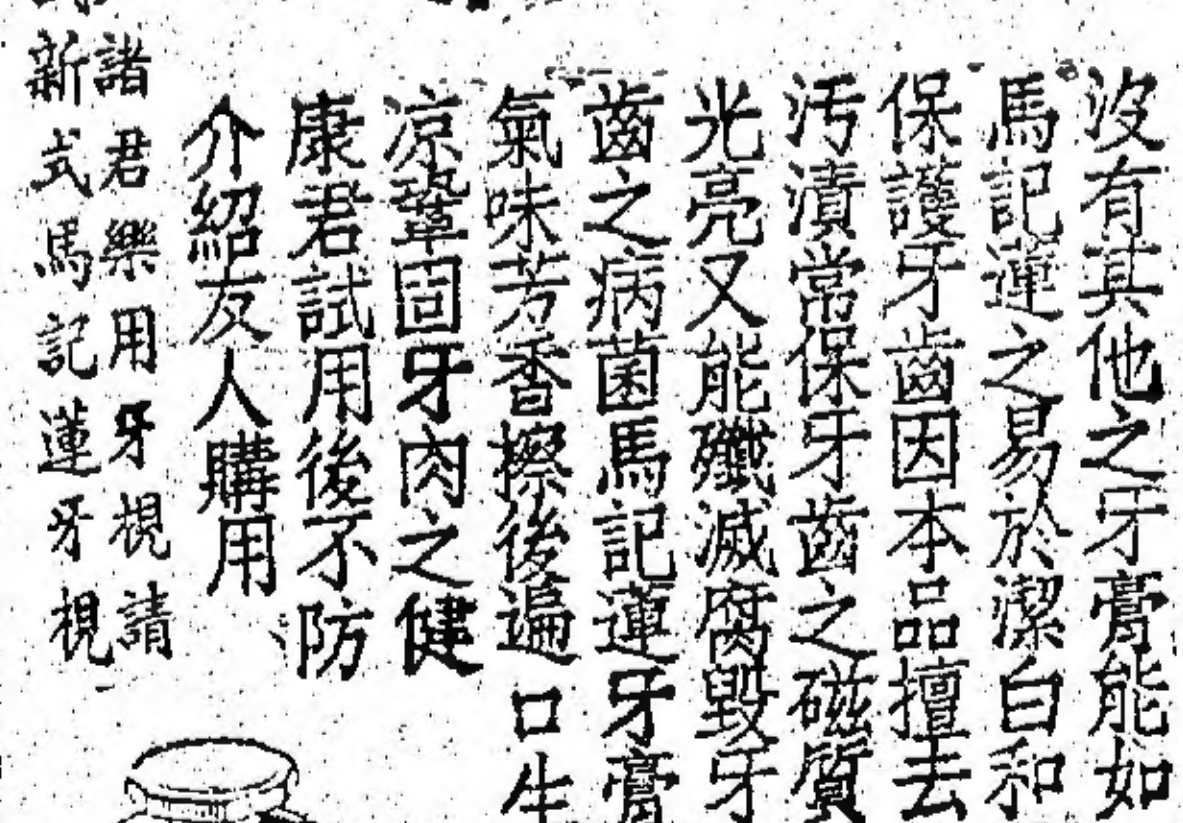 沒有其他之牙膏能如
馬記蓮之易於潔白和
保護牙齒因本品擅去
汚漬常保牙齒之磁質
光亮又能殲滅腐毀牙
齒之病菌馬記蓮牙膏
氣味芳香擦後遍口生
凉鞏固牙肉之健
康君試用後不防
介紹友人購用
諸君樂用牙梘請
新式馬記蓮牙梘